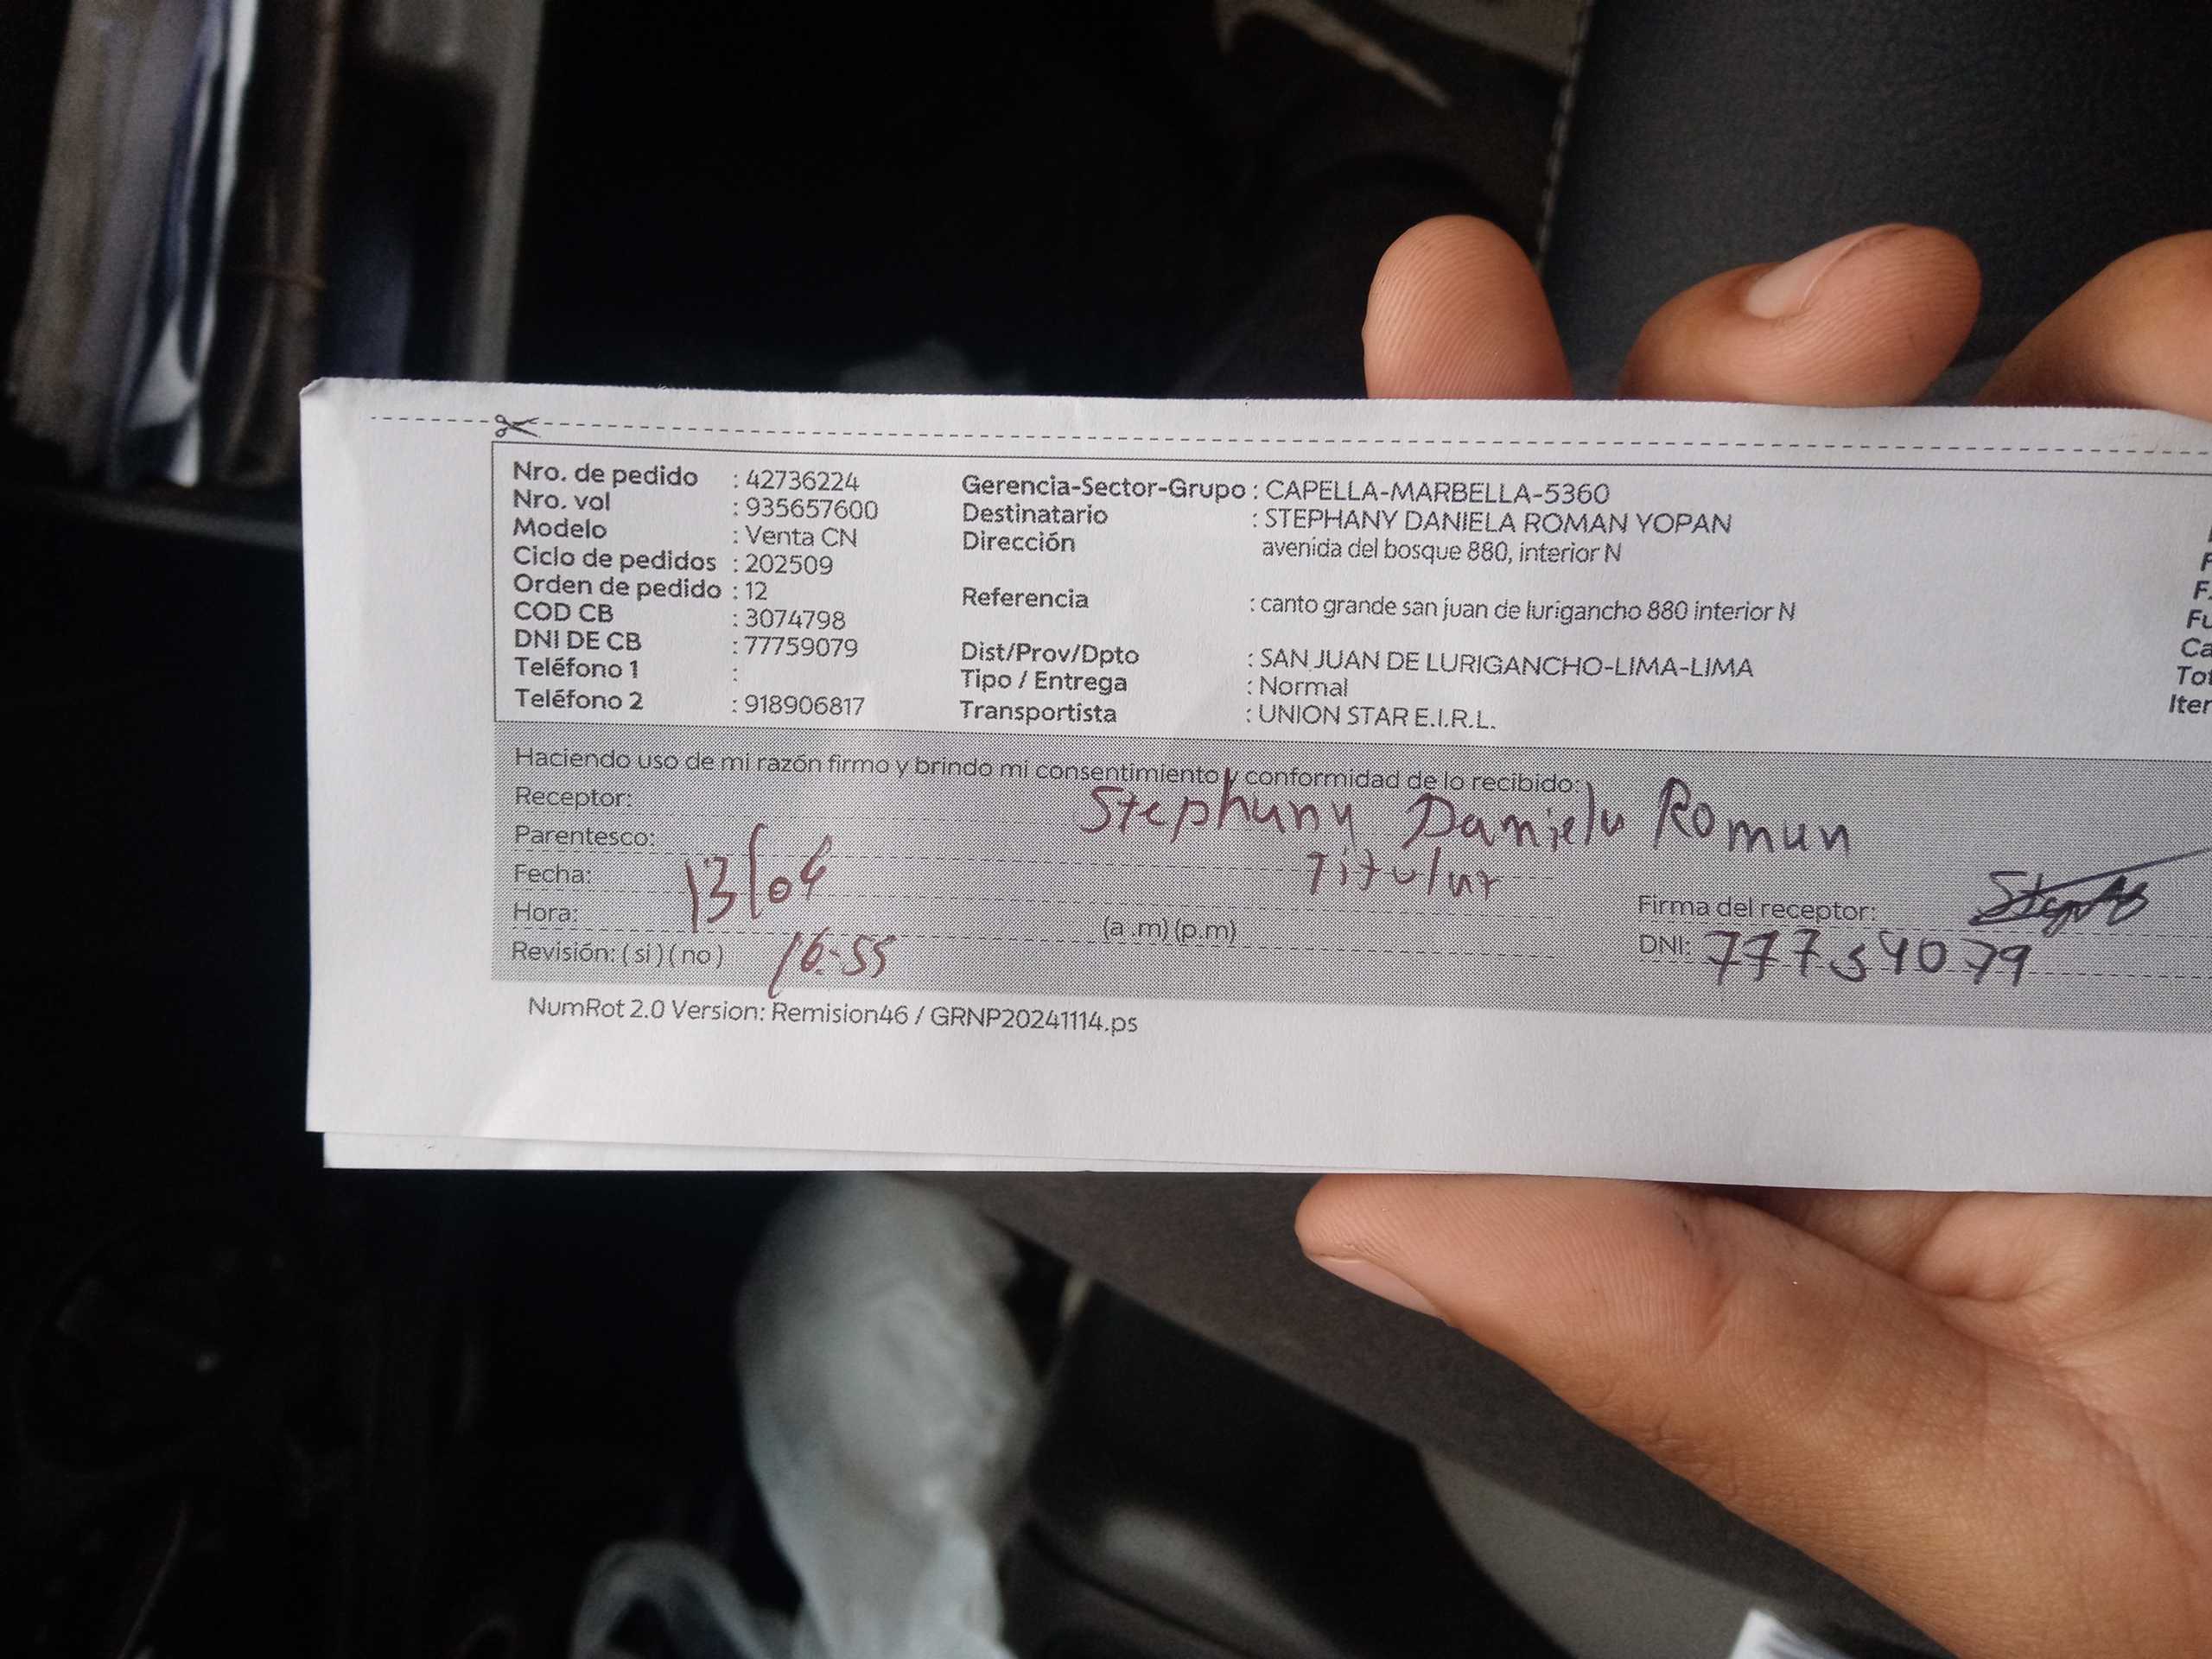 Nro. de pedido : 42736224
Nro. vol : 935657600
Modelo : Venta CN
Ciclo de pedidos : 202509
Orden de pedido : 12
COD CB : 3074798
DNI DE CB : 77759079
Teléfono 1 :
Teléfono 2 : 918906817
Gerencia-Sector-Grupo : CAPELLA-MARBELLA-5360
Destinatario : STEPHANY DANIELA ROMAN YOPAN
Dirección avenida del bosque 880, interior N
Referencia : canto grande san juan de lurigancho 880 interior N
Dist/Prov/Dpto : SAN JUAN DE LURIGANCHO-LIMA-LIMA
Tipo / Entrega : Normal
Transportista : UNION STAR E.I.R.L.
F.
Fu
Ca
Tot
Iter
Haciendo uso de mi razón firmo y brindo mi consentimiento y conformidad de lo recibido:
Receptor: Stephany Daniela Roman
Parentesco: Titular
Fecha: 13/04
Hora: 16:55 (a .m) (p.m)
Revisión: ( si ) ( no )
Firma del receptor:
DNI: 77754079
NumRot 2.0 Version: Remision46 / GRNP20241114.ps